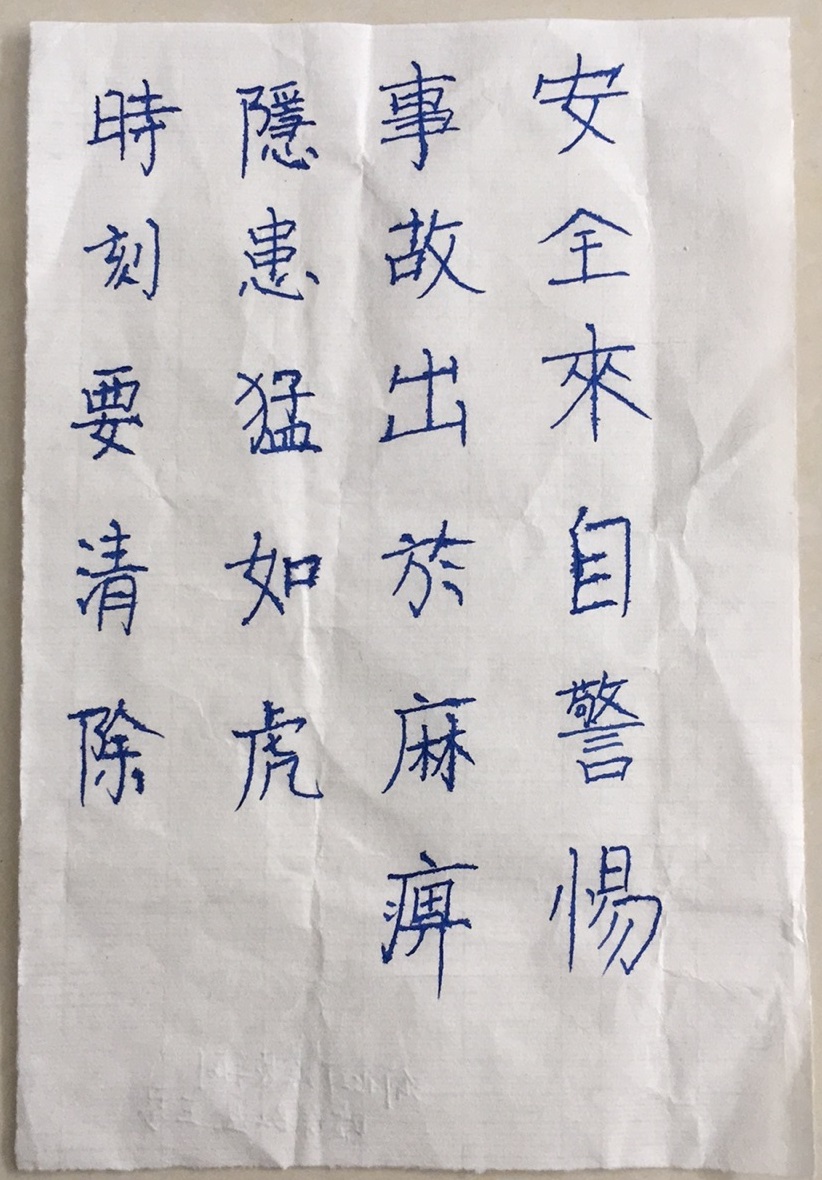 安全來自警惕
事故出於麻痹
隱患猛如虎
時刻要清除